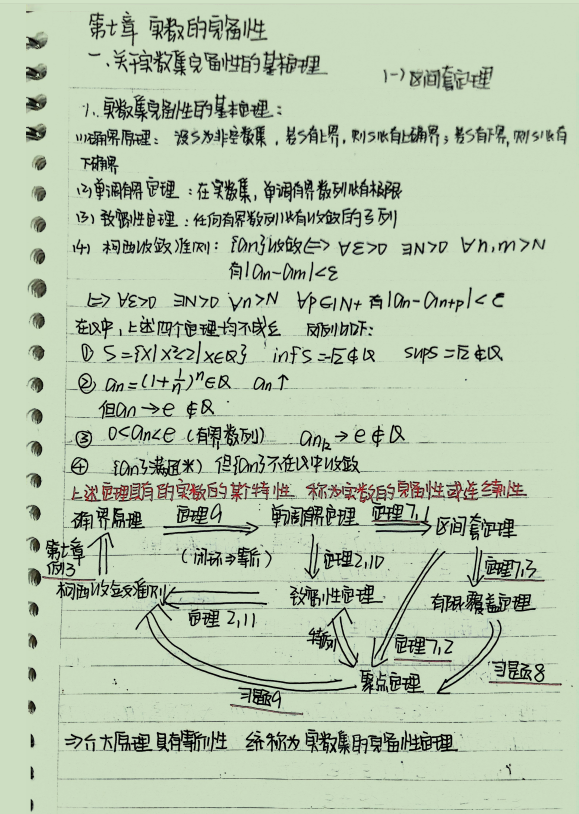 第七章 实数的完备性
一、关于实数集完备性的基本定理
(一) 区间套定理
1、实数集完备性的基本定理：
(1)确界原理：设S为非空数集，若S有上界，则S必有上确界；若S有下界，则S必有
下确界
(2)单调有界定理：在实数集，单调有界数列必有极限
(3)致密性定理：任何有界数列必有收敛的子列
(4) 柯西收敛准则：{an}收敛⇔ ∀ε>0 ∃N>0 ∀n,m>N
有|an-am|<ε
⇔ ∀ε>0 ∃N>0 ∀n>N ∀p∈N+ 有|an-an+p|<ε
在Q中，上述四个定理均不成立 反例如下：
① S={x|x²≤2|x∈Q} inf S=-√2∉Q sup S=√2∉Q
② an=(1+1/n)ⁿ∈Q an↑
但an→e∉Q
③ 0<an<e (有界数列) ank→e∉Q
④ {an}满足(*) 但{an}不在Q中收敛
上述定理具有的实数的某个特性 称为实数的完备性或连续性
确界原理 定理2,9 单调有界定理 定理7,1 区间套定理
第七章
例3
(闭环⇒等价) 定理2,10 定理7,3
柯西收敛准则 致密性定理 有限覆盖定理
定理2,11
特例 定理7,2 习题8
聚点定理
习题9
⇒六大原理具有等价性 统称为实数集的完备性定理